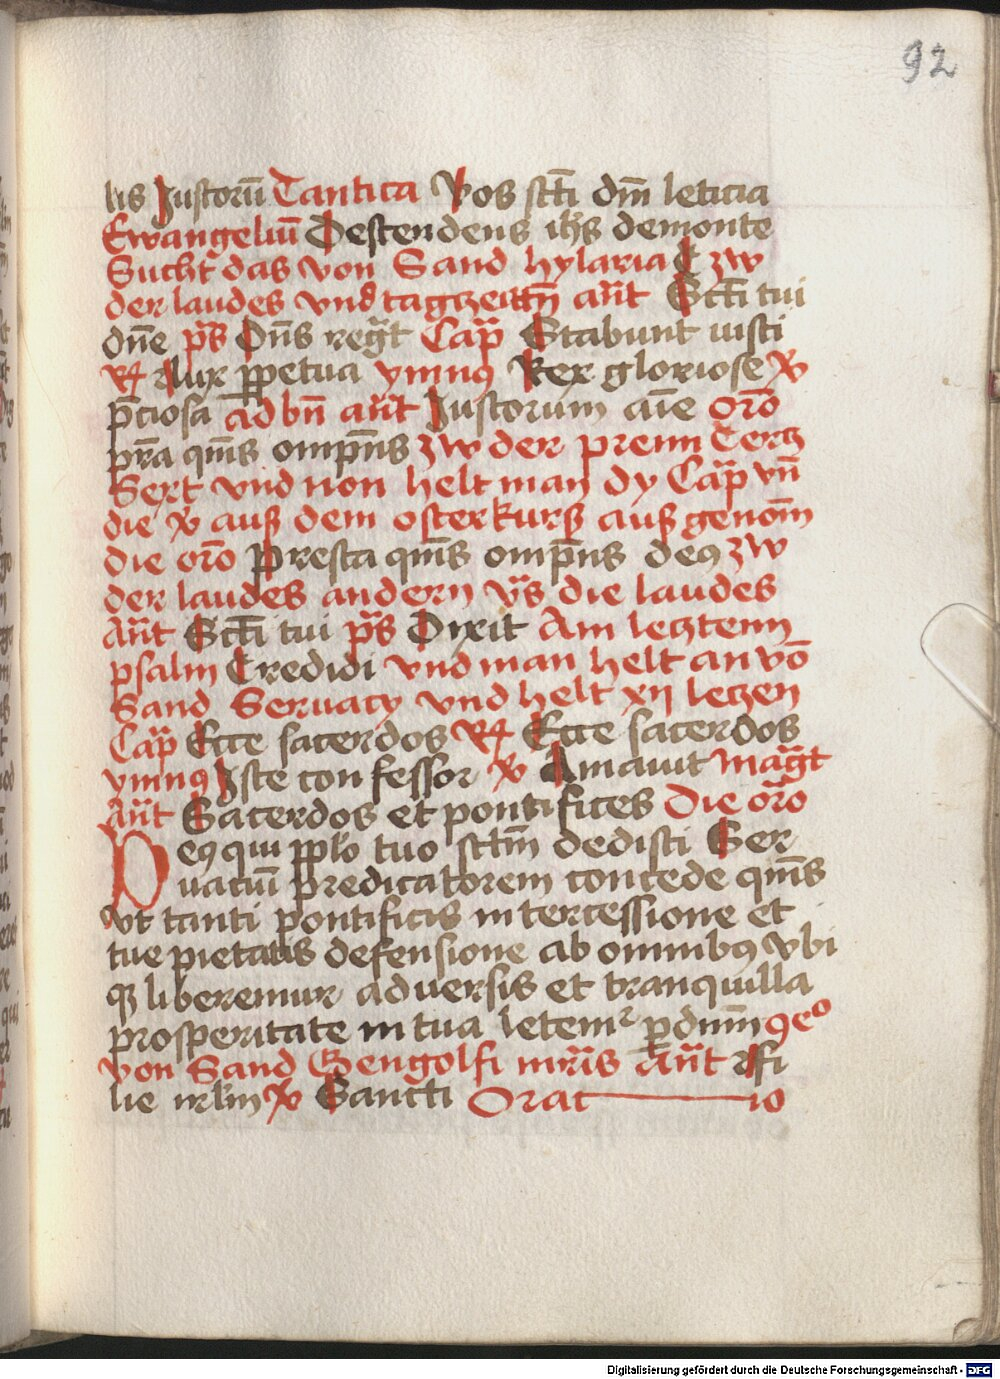 92
bis Justorū Cantica Vos sct̄i dm̄ leticia
Ewangeliū Descendens ih̄s demonte
Sucht das von Sand hylaria C zw
der laudes vnd tagczeittn̄ an̄t Sct̄i tui
dn̄e ps̄ Dn̄s regt̄ Cap̄ Stabunt iusti
R̸ Lux ꝑpetua ymnꝰ Rex gloriose V̸
p̄ciosa ad bn̄ an̄t Justorum aīe oro̅
pr̄a qm̄s omp̄ns zw der prenn Tercz
Sext vnd non helt man dy Cap̄ vn̄
die V̸ auß dem osterkurß auß genom̄
die oro̅ Presta qm̄s omp̄ns deꝰ zw
der laudes andern vs̄ die laudes
an̄t Sct̄i tui ps̄ Dixit Am lecztenn
psalm Credidi vnd man helt an vō
Sand Seruacy vnd helt xij leczen
Cap̄ Ecce sacerdos R̸ Ecce sacerdos
ymnꝰ Iste confessor V̸ Amauit mag̅t
an̄t Sacerdos et pontifices Die oro̅
Deꝰ qui pplo̅ tuo sct̄m dedisti Ser
uaciū predicatorem concede qm̄s
vt tanti pontificis intercessione et
tue pietatis defensione ab omnibꝰ vbi
qꝫ liberemur aduersis et tranquilla
prosperitate in tua letemr̉ ꝑ dnm̄ ꝯeo
von Sand Gengolfi mr̄is an̄t Filie
irl̅m V̸ Sancti Oratio
Digitalisierung gefördert durch die Deutsche Forschungsgemeinschaft - DFG